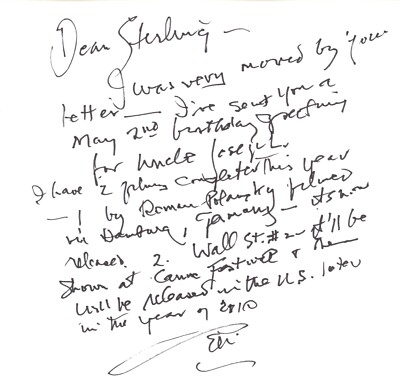 Dear Sterling —
I was very moved by your
letter — I've sent you a
May 2nd birthday greeting
for Uncle Joseph.
I have 2 films completed this year
— 1 by Roman Polansky filmed
in Hamburg, Germany — it's now
released 2. Wall St. #2 — it'll be
shown at Canne Festival & then
will be released in the U.S. later
in the year of 2010
Eli